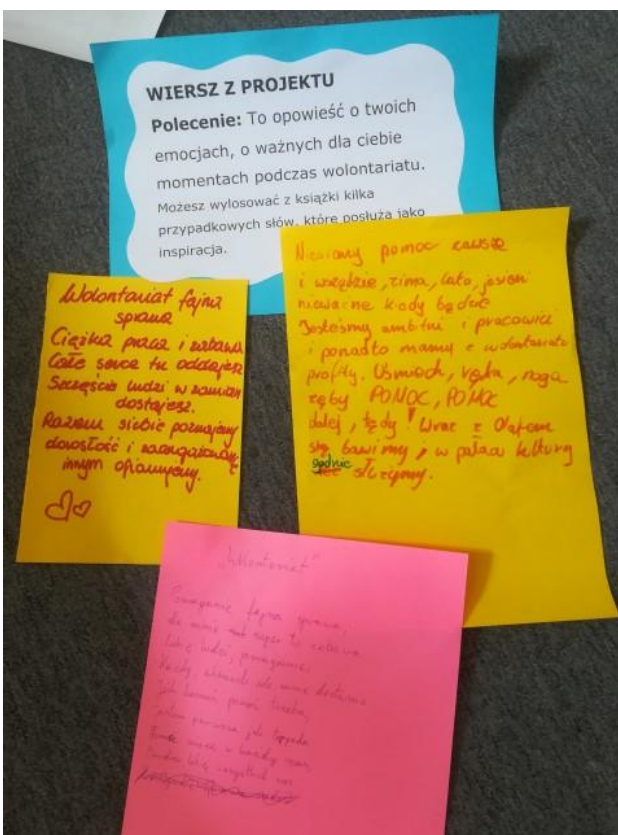 WIERSZ Z PROJEKTU
Polecenie: To opowieść o twoich
emocjach, o ważnych dla ciebie
momentach podczas wolontariatu.
Możesz wylosować z książki kilka
przypadkowych słów, które posłużą jako
inspiracja.
Wolontariat fajna
sprawa
Ciężka praca i zabawa
Całe serce tu oddajesz
Szczęście ludzi w zamian
dostajesz.
Razem siebie poznajemy
dorosłość i zaangażowanie
innym ofiarujemy.
Niesiemy pomoc zawsze
i wszędzie, zima, lato, jesień
nieważne kiedy będzie
Jesteśmy ambitni i pracowici
i ponadto mamy z wolontariatu
profity. Uśmiech, ręka, noga
zęby POMOC, POMOC
dalej, tędy! Wraz z Olafem
się bawimy, w pałacu kultury
godnie służymy.
"Wolontariat"
fajna sprawa,
dla mnie super to zabawa
Lubię ludzi, pomaganie,
pomóc trzeba,
w każdy czas,
wszystkich was